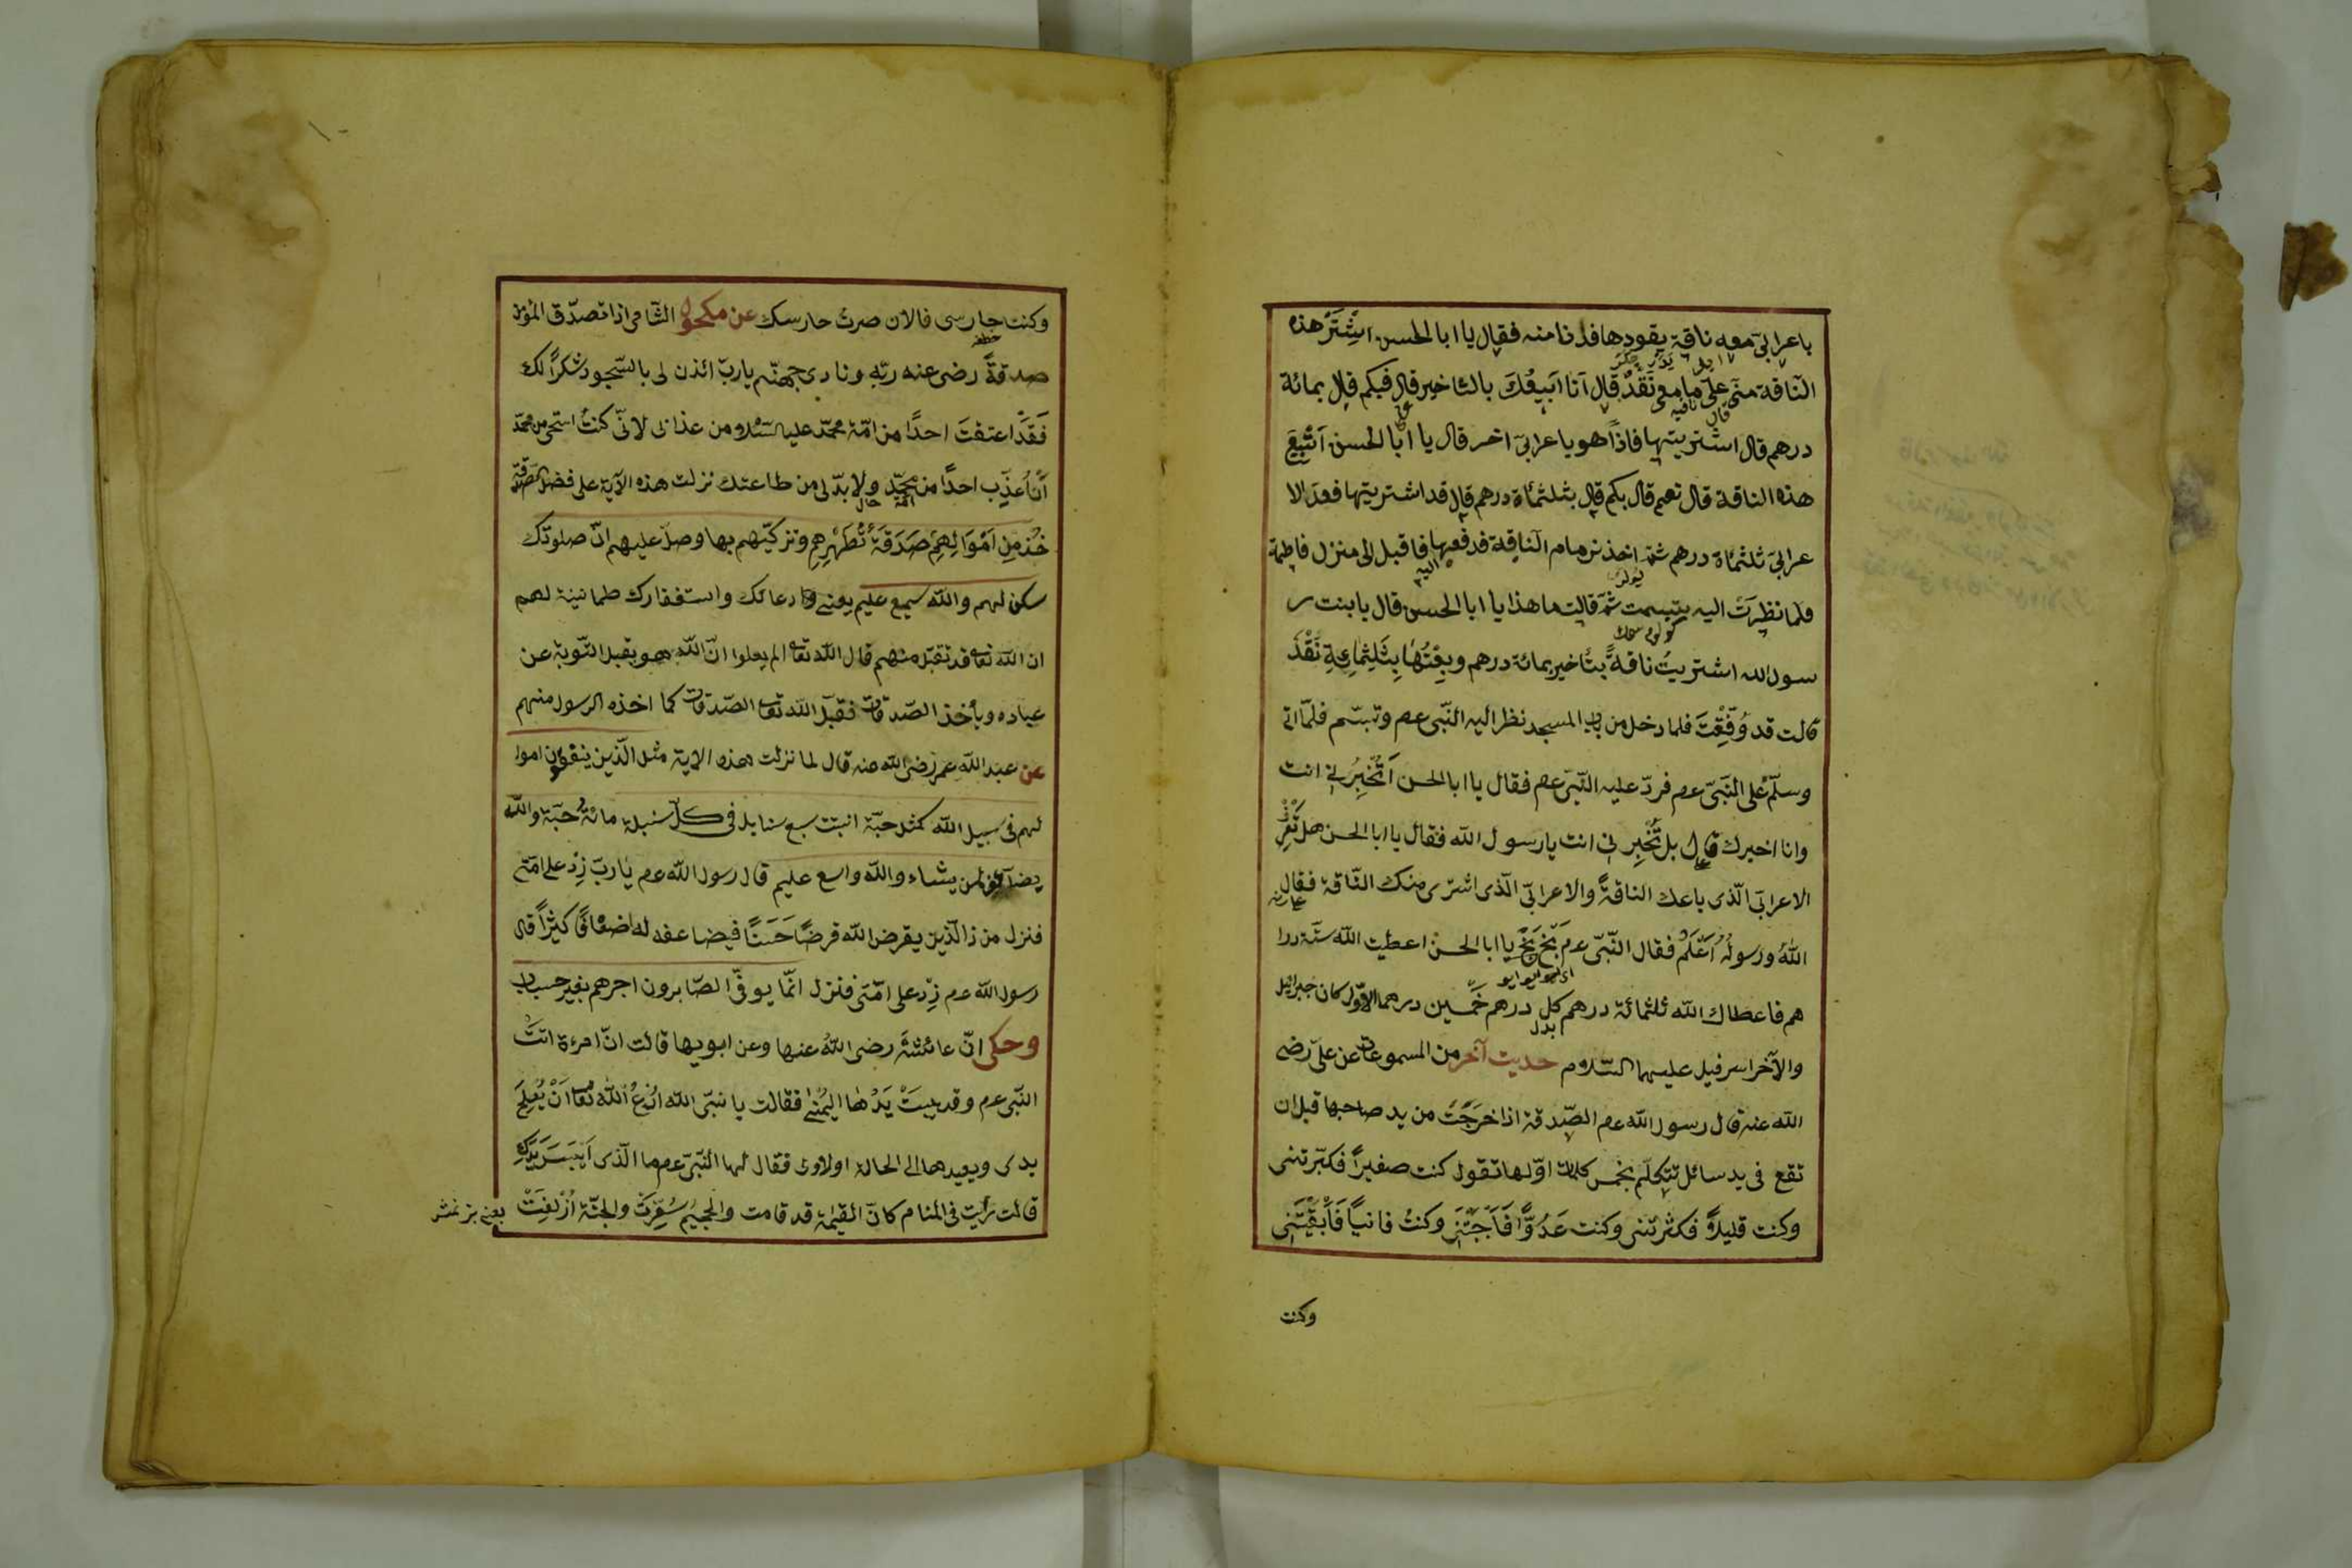 باعرابىّ معه ناقة يقودها فدنا منه فقال يا ابا الحسن اشْتَرِ هذه
النّاقة منّى علىّ ما معى نَقْدٌ قال اَنا اَبيعُكَ بالتاخير قال فبكم قال بمائة
درهم قال اشتريتها فاذاً هو باعرابىّ اخر قال يا ابا الحسن اَتَبِيعَ
هذه الناقة قال نعم قال بكم قال بثلثمائة درهم قال قد اشتريتها فعدّ الا
عرابىّ ثلثمائة درهم ثمّ اخذ زمام النّاقة فدفعها اليه فاقبل الى منزل فاطمة
فلما نظرَتْ اليه تبسمت ثمّ قالت ما هذا يا ابا الحسن قال يا بنت ر
سول الله اشتريتُ ناقةً بتاخير بمائة درهم وبِعْتُها بِثَلِثمايةِ نَقْدَ
قالت قد وُفِّقِتَ فلما دخل من باب المسجد نظر اليه النّبى عم وتبسّم فلمّا اتى
وسلّم على النّبىّ عم فردّ عليه النّبىّ عم فقال يا ابا الحسن اَتُخْبِرُنى انت
وانا اخبرك قال بل تُخْبِرنى انت يا رسول الله فقال يا ابا الحسن هل تَعْرِفُ
الاعرابىّ الّذى باعك الناقةَ والاعرابىّ الّذى اشترى منك النّاقة فقال
اللهُ ورسولُهُ اَعْلَمُ فقال النّبىّ عم بَخٍ بَخٍ يا ابا الحسن اعطيت الله ستّة درا
هم فاعطاك الله ثلثمائة درهم كل درهم خمسين درهما الاوّل كان جبرائيل
والآخر اسرفيل عليهما السّلام حديث آخر من المسموعات عن علىّ رضى
الله عنه قال رسول الله عم الصّدقة اذا خرجَتْ من يد صاحبها قبل ان
تقع فى يد سائل تتكلّم بخمس كلمات اوّلها تقول كنت صغيراً فكبّرتنى
وكنت قليلاً فكثرتنى وكنت عَدُوًّا فَاَحْبَبْتَنى وكنتُ فانياً فَاَبْقَيْتَنى
وكنت
وكنت حارسى فالان صرتُ حارسك عن مكحول الشّامى اذا تصدّق المؤمن
صدقةً رضى عنه ربّه ونادى جهنّم يا ربّ ائذن لى بالسّجود شكراً لك
فَقَدْ اعتقتَ احدًا من امّة محمّد عليه السّلام من عذابى لانّى كنتُ استحى من محمّد
اَنْ اُعذِّب احدًا من امّته ولا بدّ لى من طاعتك نزلت هذه الآية على فضل الصّدقة
خُذْ مِنْ اَمْوَالِهِمْ صَدَقَةً تُطَهِّرِهِمْ وتزكّيهم بها وصلّ عليهم انّ صلوتك
سكن لهم والله سميع عليم يعنى دعائك واستغفارك طمانينة لهم
ان الله تعالى قد تقبّل منهم قال الله تعالى الم يعلموا انّ الله هو يقبل التّوبة عن
عباده ويأخذ الصّدقات فقبل الله تعالى الصّدقات كما اخذه الرسول منهم
عن عبد الله عمر رضى الله عنه قال لما نزلت هذه الاية مثل الّذين ينفقون اموا
لهم فى سبيل الله كمثل حبّة انبتت سبع سنابل فى كلّ سنبلة مائة حبّة والله
يضاعف لمن يشاء والله واسع عليم قال رسول الله عم يا ربّ زِدْ على امّتى
فنزل من ذا الّذين يقرض الله قرضًا حَسَنًا فيضاعفه له اضعافًا كثيراً قال
رسول الله عم زِدْ على امّتى فنزل انّما يوفّى الصّابرون اجرهم بغير حساب
وحكى انّ عائشةَ رضى اللهُ عنها وعن ابويها قالت انّ امرءة اتتْ
النّبى عم وقد يبستْ يَدُها اليُمْنى فقالت يا نبىّ الله اُدْعُ اللهَ تعالى اَنْ يُصْلِحَ
يدى ويعيدها الى الحالة الاولى فقال لها النّبىّ عم ما الّذى اَيْبَسَ يَدَكِ
قالت رأيت فى المنام كانّ القيمة قد قامت والجحيم سُعِّرَتْ والجنّة اُزْلِفَتْ